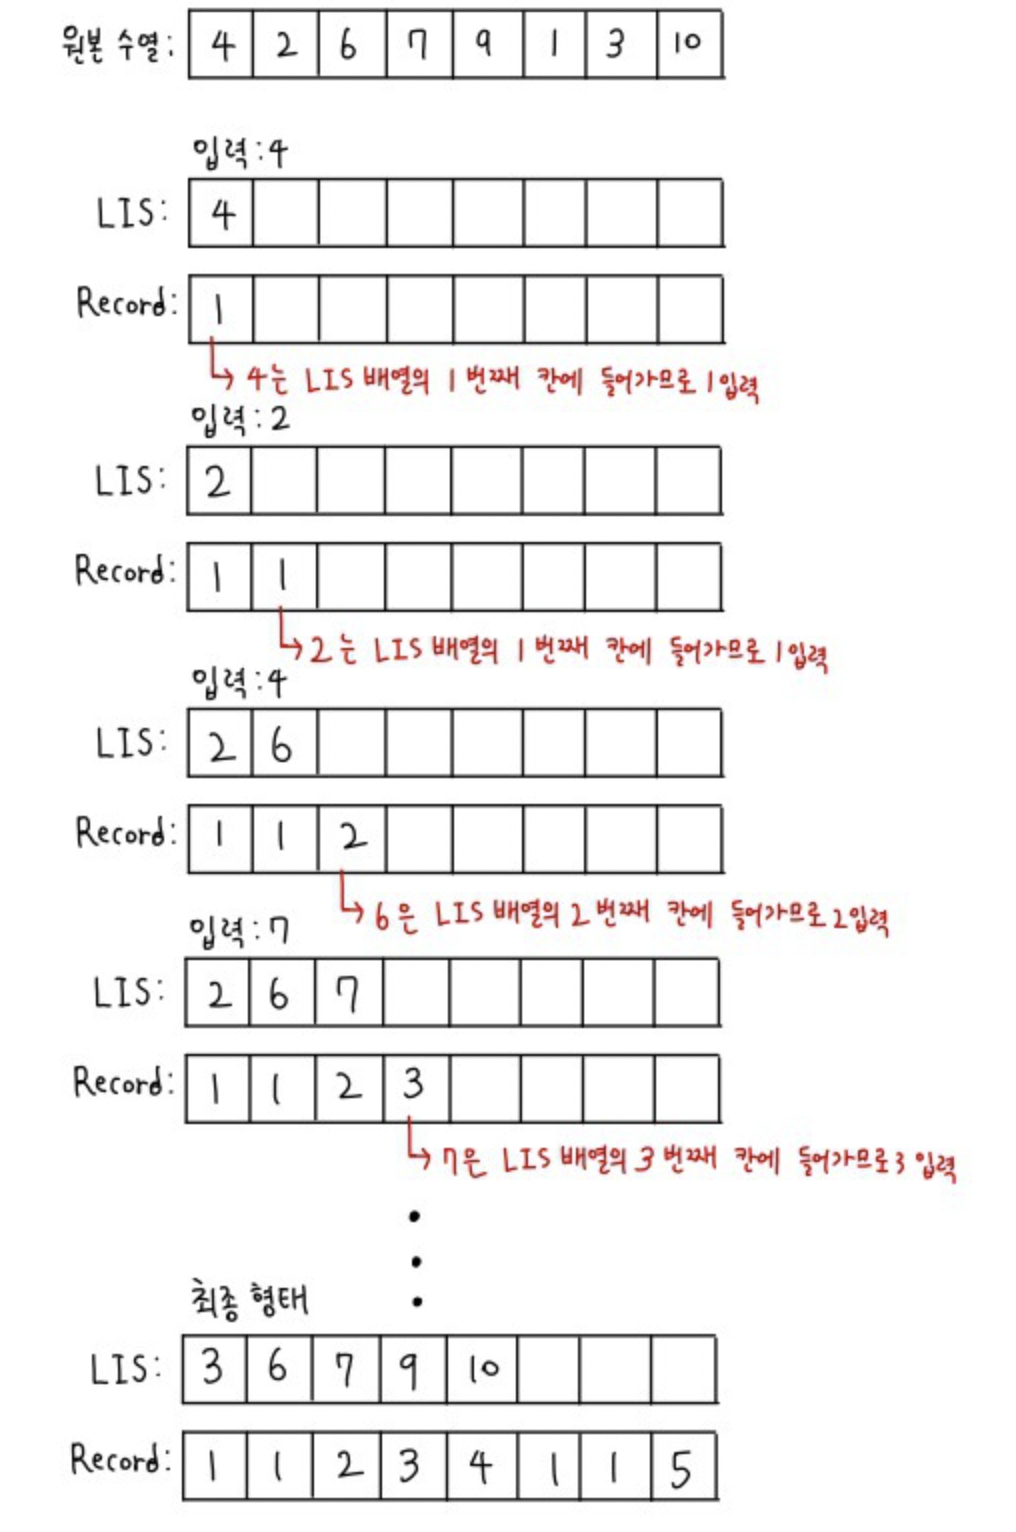 원본 수열: 4 2 6 7 9 1 3 10
입력:4
LIS: 4
Record: 1
4는 LIS 배열의 1 번째 칸에 들어가므로 1입력
입력:2
LIS: 2
Record: 1 1
2는 LIS 배열의 1 번째 칸에 들어가므로 1입력
입력:4
LIS: 2 6
Record: 1 1 2
6은 LIS 배열의 2 번째 칸에 들어가므로 2입력
입력:7
LIS: 2 6 7
Record: 1 1 2 3
7은 LIS 배열의 3 번째 칸에 들어가므로 3 입력
최종 형태
LIS: 3 6 7 9 10
Record: 1 1 2 3 4 1 1 5